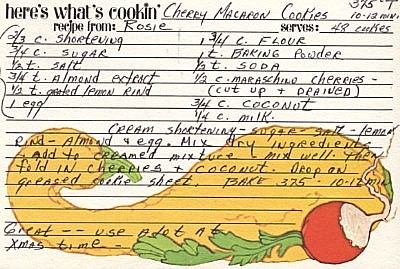 here's what's cookin' Cherry Macaron Cookies 375-T
10-12 min.
recipe from: Rosie serves: 48 cookies
2/3 c. Shortening 1 3/4 c. Flour
3/4 c. Sugar 1 t. Baking Powder
1/2 t. Salt 1/2 t. Soda
3/4 t. Almond extract 1/2 c. maraschino cherries -
1/2 t. grated lemon rind (cut up + drained)
1 egg 3/4 c. coconut
1/4 c. milk.
Cream shortening - sugar - salt - lemon
rind - Almond & egg. Mix dry ingredients
+ add to creamed mixture - mix well. Then
fold in cherries + coconut. Drop on
greased cookie sheet. Bake 375 - 10-12 min
Great -- use a lot at
Xmas time -